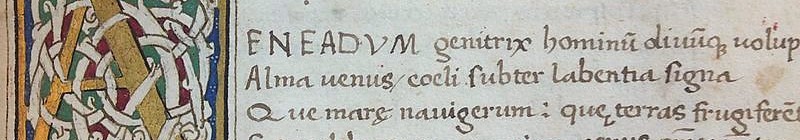 AENEADVM genitrix hominũ diuũq; uolup
Alma uenus, coeli subter labentia signa
Que marę nauigerum: quę terras frugiferẽ